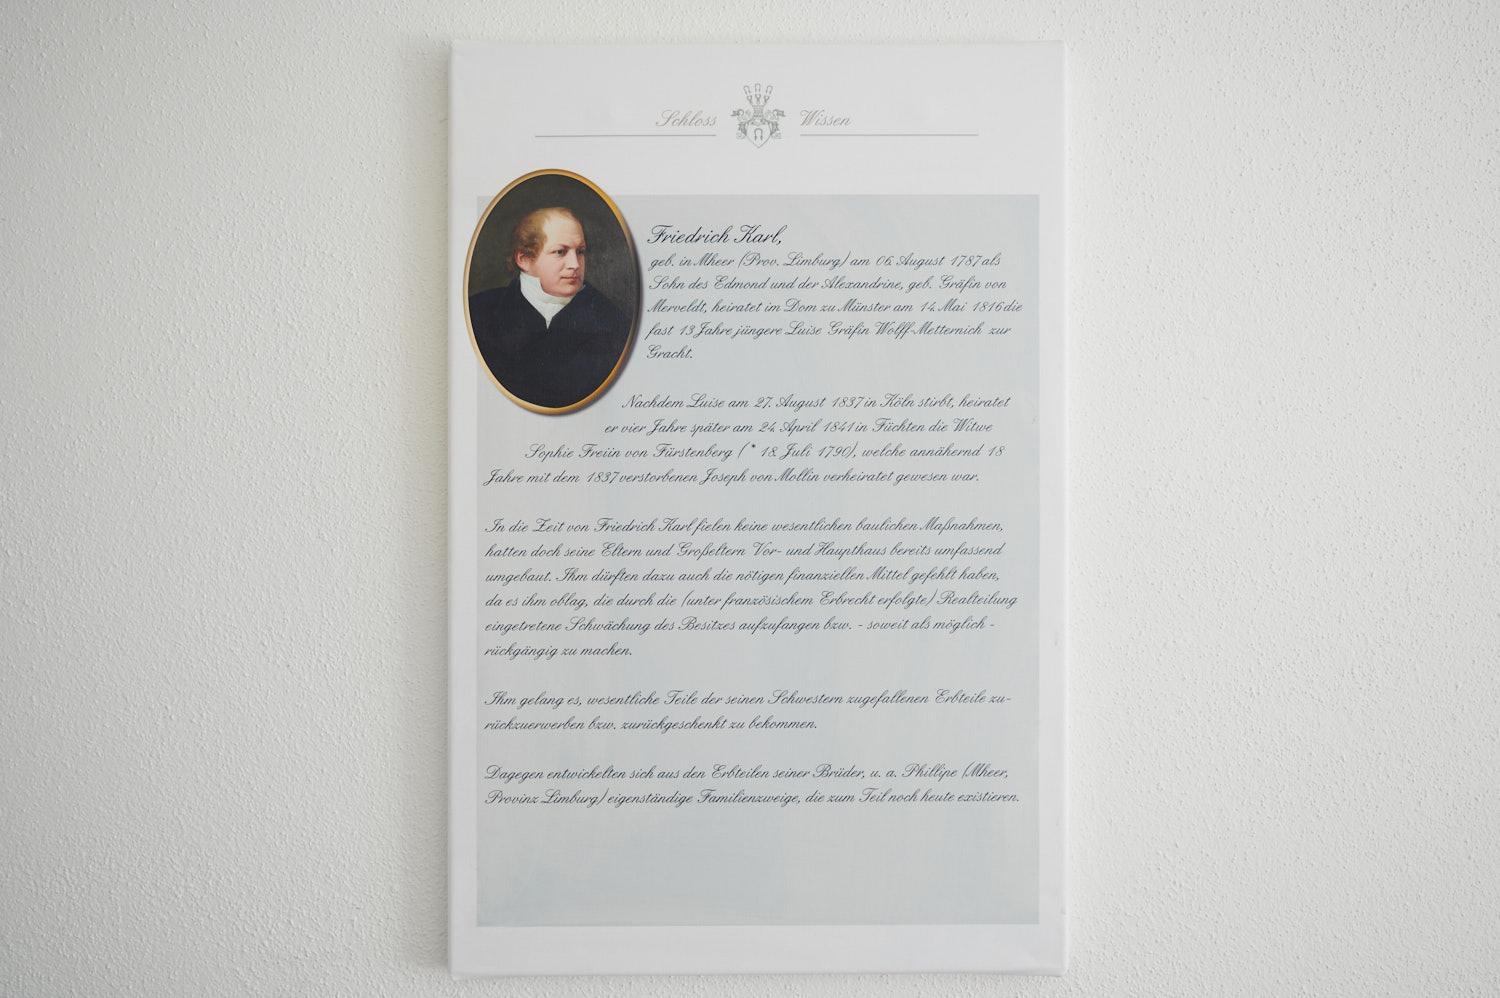 Schloss Wissen
Friedrich Karl,
geb. in Mheer (Prov. Limburg) am 06. August 1787 als
Sohn des Edmond und der Alexandrine, geb. Gräfin von
Merveldt, heiratet im Dom zu Münster am 14. Mai 1816 die
fast 13 Jahre jüngere Luise Gräfin Wolff-Metternich zur
Gracht.
Nachdem Luise am 27. August 1837 in Köln stirbt, heiratet
er vier Jahre später am 24. April 1841 in Füchten die Witwe
Sophie Freiin von Fürstenberg ( * 18. Juli 1790), welche annähernd 18
Jahre mit dem 1837 verstorbenen Joseph von Mollin verheiratet gewesen war.
In die Zeit von Friedrich Karl fielen keine wesentlichen baulichen Maßnahmen,
hatten doch seine Eltern und Großeltern Vor- und Haupthaus bereits umfassend
umgebaut. Ihm dürften dazu auch die nötigen finanziellen Mittel gefehlt haben,
da es ihm oblag, die durch die (unter französischem Erbrecht erfolgte) Realteilung
eingetretene Schwächung des Besitzes aufzufangen bzw. - soweit als möglich -
rückgängig zu machen.
Ihm gelang es, wesentliche Teile der seinen Schwestern zugefallenen Erbteile zu-
rückzuerwerben bzw. zurückgeschenkt zu bekommen.
Dagegen entwickelten sich aus den Erbteilen seiner Brüder, u. a. Phillipe (Mheer,
Provinz Limburg) eigenständige Familienzweige, die zum Teil noch heute existieren.